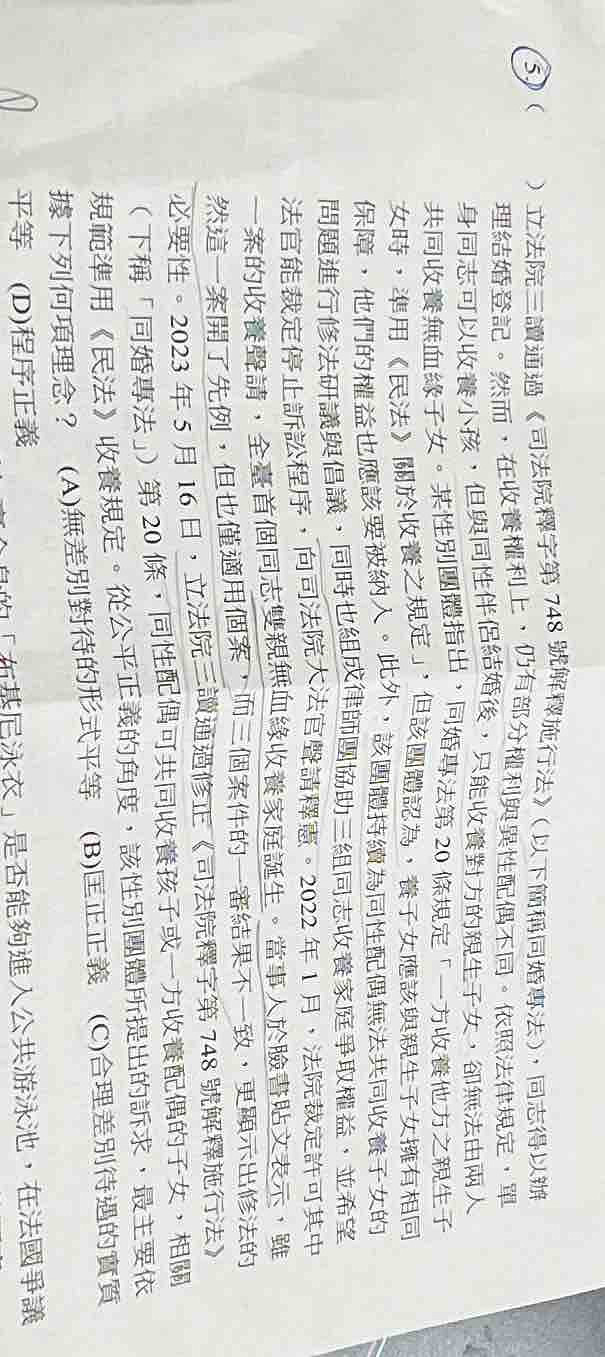 5.(　　)立法院三讀通過《司法院釋字第 748 號解釋施行法》(以下簡稱同婚專法)，同志得以辦
理結婚登記。然而，在收養權利上，仍有部分權利與異性配偶不同。依照法律規定，單
身同志可以收養小孩，但與同性伴侶結婚後，只能收養對方的親生子女，卻無法由兩人
共同收養無血緣子女。某性別團體指出，同婚專法第 20 條規定「一方收養他方之親生子
女時，準用《民法》關於收養之規定」，但該團體認為，養子女應該與親生子女擁有相同
保障，他們的權益也應該要被納入。此外，該團體持續為同性配偶無法共同收養子女的
問題進行修法研議與倡議，同時也組成律師團協助三組同志收養家庭爭取權益，並希望
法官能裁定停止訴訟程序，向司法院大法官聲請釋憲。2022 年 1 月，法院裁定許可其中
一案的收養聲請，全臺首個同志雙親無血緣收養家庭誕生。當事人於臉書貼文表示，雖
然這一案開了先例，但也僅適用個案，而三個案件的一審結果不一致，更顯示出修法的
必要性。2023 年 5 月 16 日，立法院三讀通過修正《司法院釋字第 748 號解釋施行法》
(下稱「同婚專法」)第 20 條，同性配偶可共同收養孩子或一方收養配偶的子女，相關
規範準用《民法》收養規定。從公平正義的角度，該性別團體所提出的訴求，最主要依
據下列何項理念？　(A)無差別對待的形式平等　(B)匡正正義　(C)合理差別待遇的實質
平等　(D)程序正義
「布基尼泳衣」是否能夠進入公共游泳池，在法國爭議